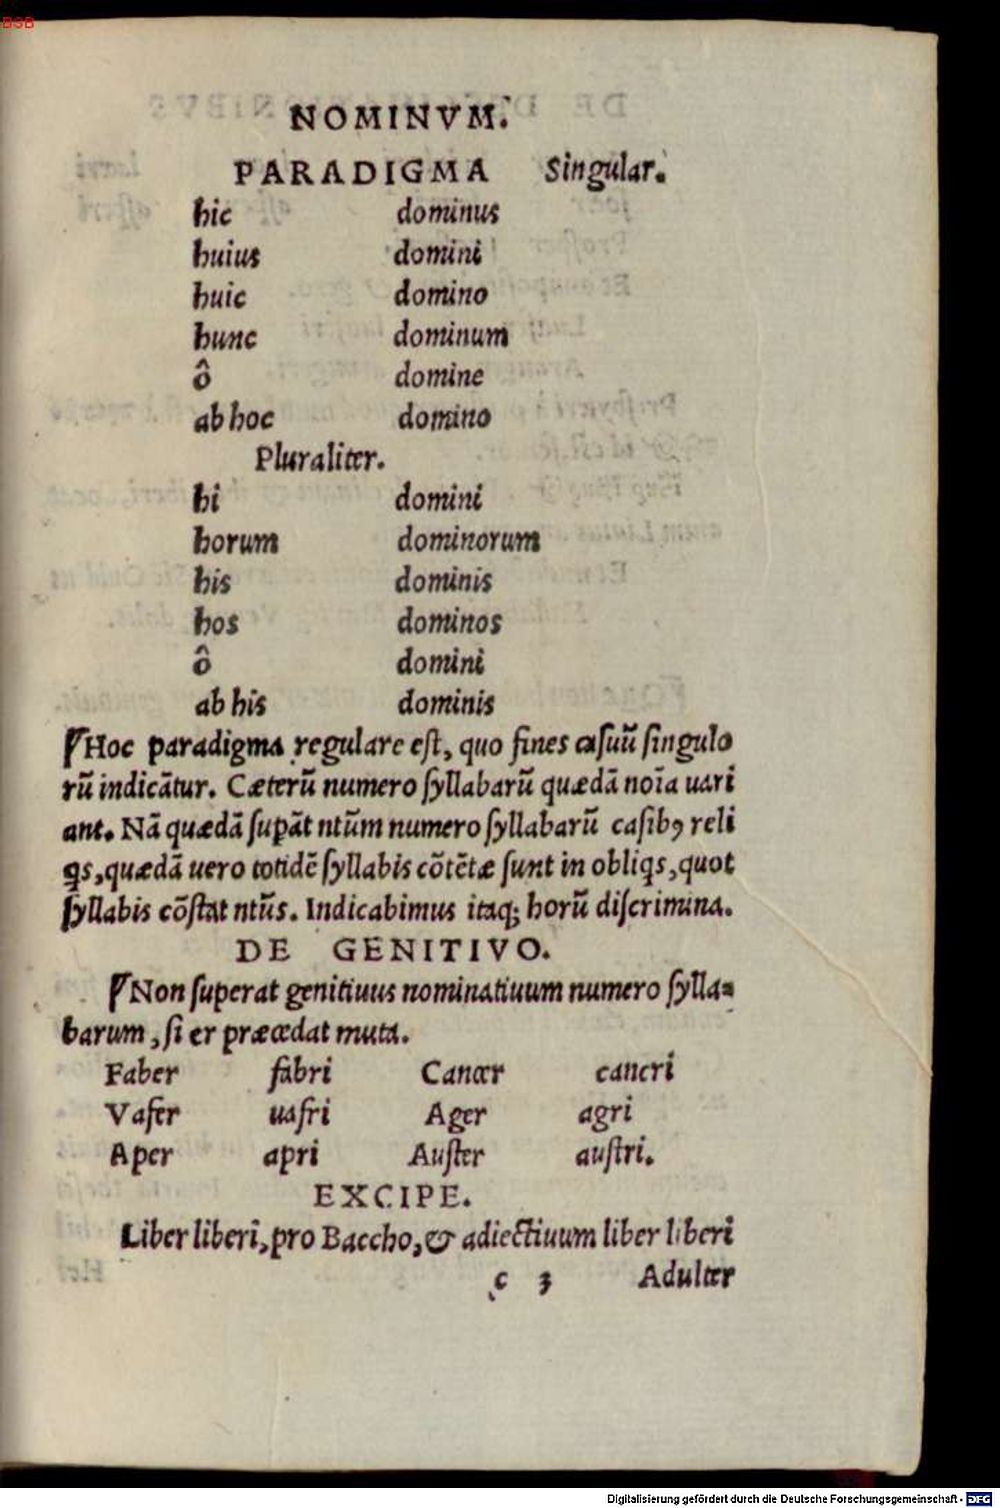 BSB
NOMINVM.
PARADIGMA Singular.
hic dominus
huius domini
huic domino
hunc dominum
ô domine
ab hoc domino
Pluraliter.
hi domini
horum dominorum
his dominis
hos dominos
ô domini
ab his dominis
¶Hoc paradigma regulare eſt, quo fines caſuũ ſingulo
rũ indicãtur. Cæterũ numero ſyllabarũ quædã noĩa uari
ant. Nã quædã ſupãt ntũm numero ſyllabarũ caſibꝰ reli
qs, quædã uero totidẽ ſyllabis cõtẽtæ ſunt in obliqs, quot
ſyllabis cõſtat ntũs. Indicabimus itaq; horũ diſcrimina.
DE GENITIVO.
¶Non ſuperat genitiuus nominatiuum numero ſylla=
barum, ſi er præcedat muta.
Faber fabri Cancer cancri
Vafer uafri Ager agri
Aper apri Auſter auſtri.
EXCIPE.
Liber liberi, pro Baccho, & adiectiuum liber liberi
c 3 Adulter
Digitalisierung gefördert durch die Deutsche Forschungsgemeinschaft - DFG